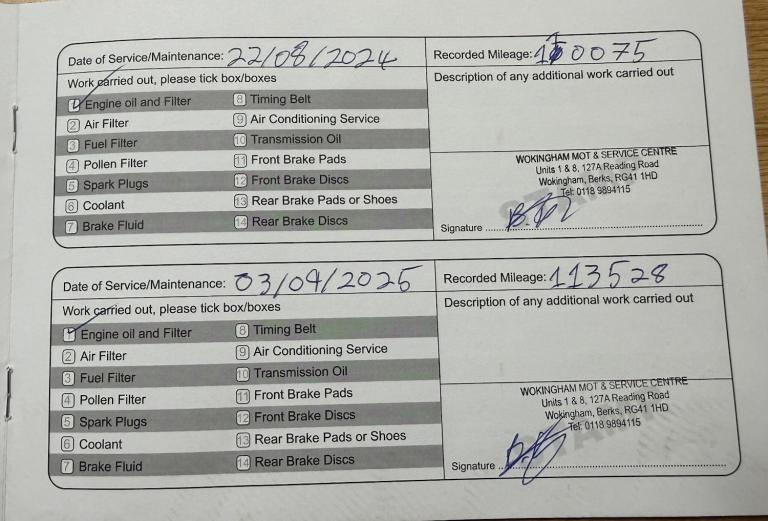 Date of Service/Maintenance: 22/08/2024
Recorded Mileage: 110075
Work carried out, please tick box/boxes
Description of any additional work carried out
1 Engine oil and Filter
8 Timing Belt
2 Air Filter
9 Air Conditioning Service
3 Fuel Filter
10 Transmission Oil
4 Pollen Filter
11 Front Brake Pads
5 Spark Plugs
12 Front Brake Discs
6 Coolant
13 Rear Brake Pads or Shoes
7 Brake Fluid
14 Rear Brake Discs
WOKINGHAM MOT & SERVICE CENTRE
Units 1 & 8, 127A Reading Road
Wokingham, Berks, RG41 1HD
Tel: 0118 9894115
STAMP
Signature
Date of Service/Maintenance: 03/09/2025
Recorded Mileage: 113528
Work carried out, please tick box/boxes
Description of any additional work carried out
1 Engine oil and Filter
8 Timing Belt
2 Air Filter
9 Air Conditioning Service
3 Fuel Filter
10 Transmission Oil
4 Pollen Filter
11 Front Brake Pads
5 Spark Plugs
12 Front Brake Discs
6 Coolant
13 Rear Brake Pads or Shoes
7 Brake Fluid
14 Rear Brake Discs
WOKINGHAM MOT & SERVICE CENTRE
Units 1 & 8, 127A Reading Road
Wokingham, Berks, RG41 1HD
Tel: 0118 9894115
STAMP
Signature